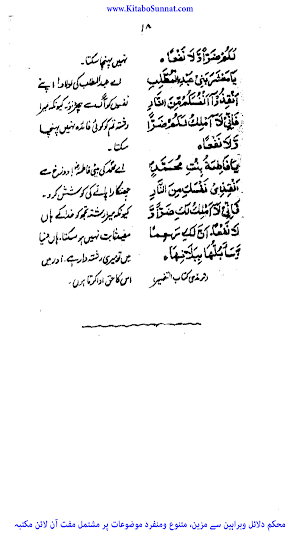 www.KitaboSunnat.com
۱۸
لَكُمْ ضَرًّا وَّ لَا نَفْعًا ۔
يَا مَعْشَرَ بَنِي عَبْدِ الْمُطَّلِبِ
أَنْقِذُوْا أَنْفُسَكُمْ مِنَ النَّارِ
فَإِنِّيْ لَا أَمْلِكُ لَكُمْ ضَرًّا
وَّ لَا نَفْعًا ۔
يَا فَاطِمَةُ بِنْتُ مُحَمَّدٍ
أَنْقِذِيْ نَفْسَكِ مِنَ النَّارِ
فَإِنِّيْ لَا أَمْلِكُ لَكِ ضَرًّا وَّ
لَا نَفْعًا إِنَّ لَكِ رَحِمًا
وَّ سَأَبُلُّهَا بِبَلَالِهَا ۔
(ترمذی کتاب التفسیر)
نہیں پہنچا سکتا۔
اے عبدالمطلب کی اولاد! اپنے
نفسوں کو آگ سے بچالو کیونکہ میرا
رشتہ تم کو کوئی فائدہ نہیں پہنچا
سکتا۔
اے محمد کی بیٹی فاطمہ! دوزخ سے
چھٹکارا پانے کی کوشش کرو۔
کیونکہ میرا رشتہ تجھ کو خدا کے ہاں
مفید ثابت نہیں ہو سکتا، ہاں دنیا
میں تو میری رشتہ دار ہے۔ اور میں
اس کا حق ادا کرتا ہوں۔
محکم دلائل وبراہین سے مزین، متنوع ومنفرد موضوعات پر مشتمل مفت آن لائن مکتبہ